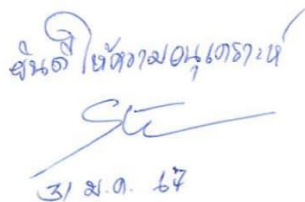 ยินดีให้ความอนุเคราะห์
31 ม.ค. 67